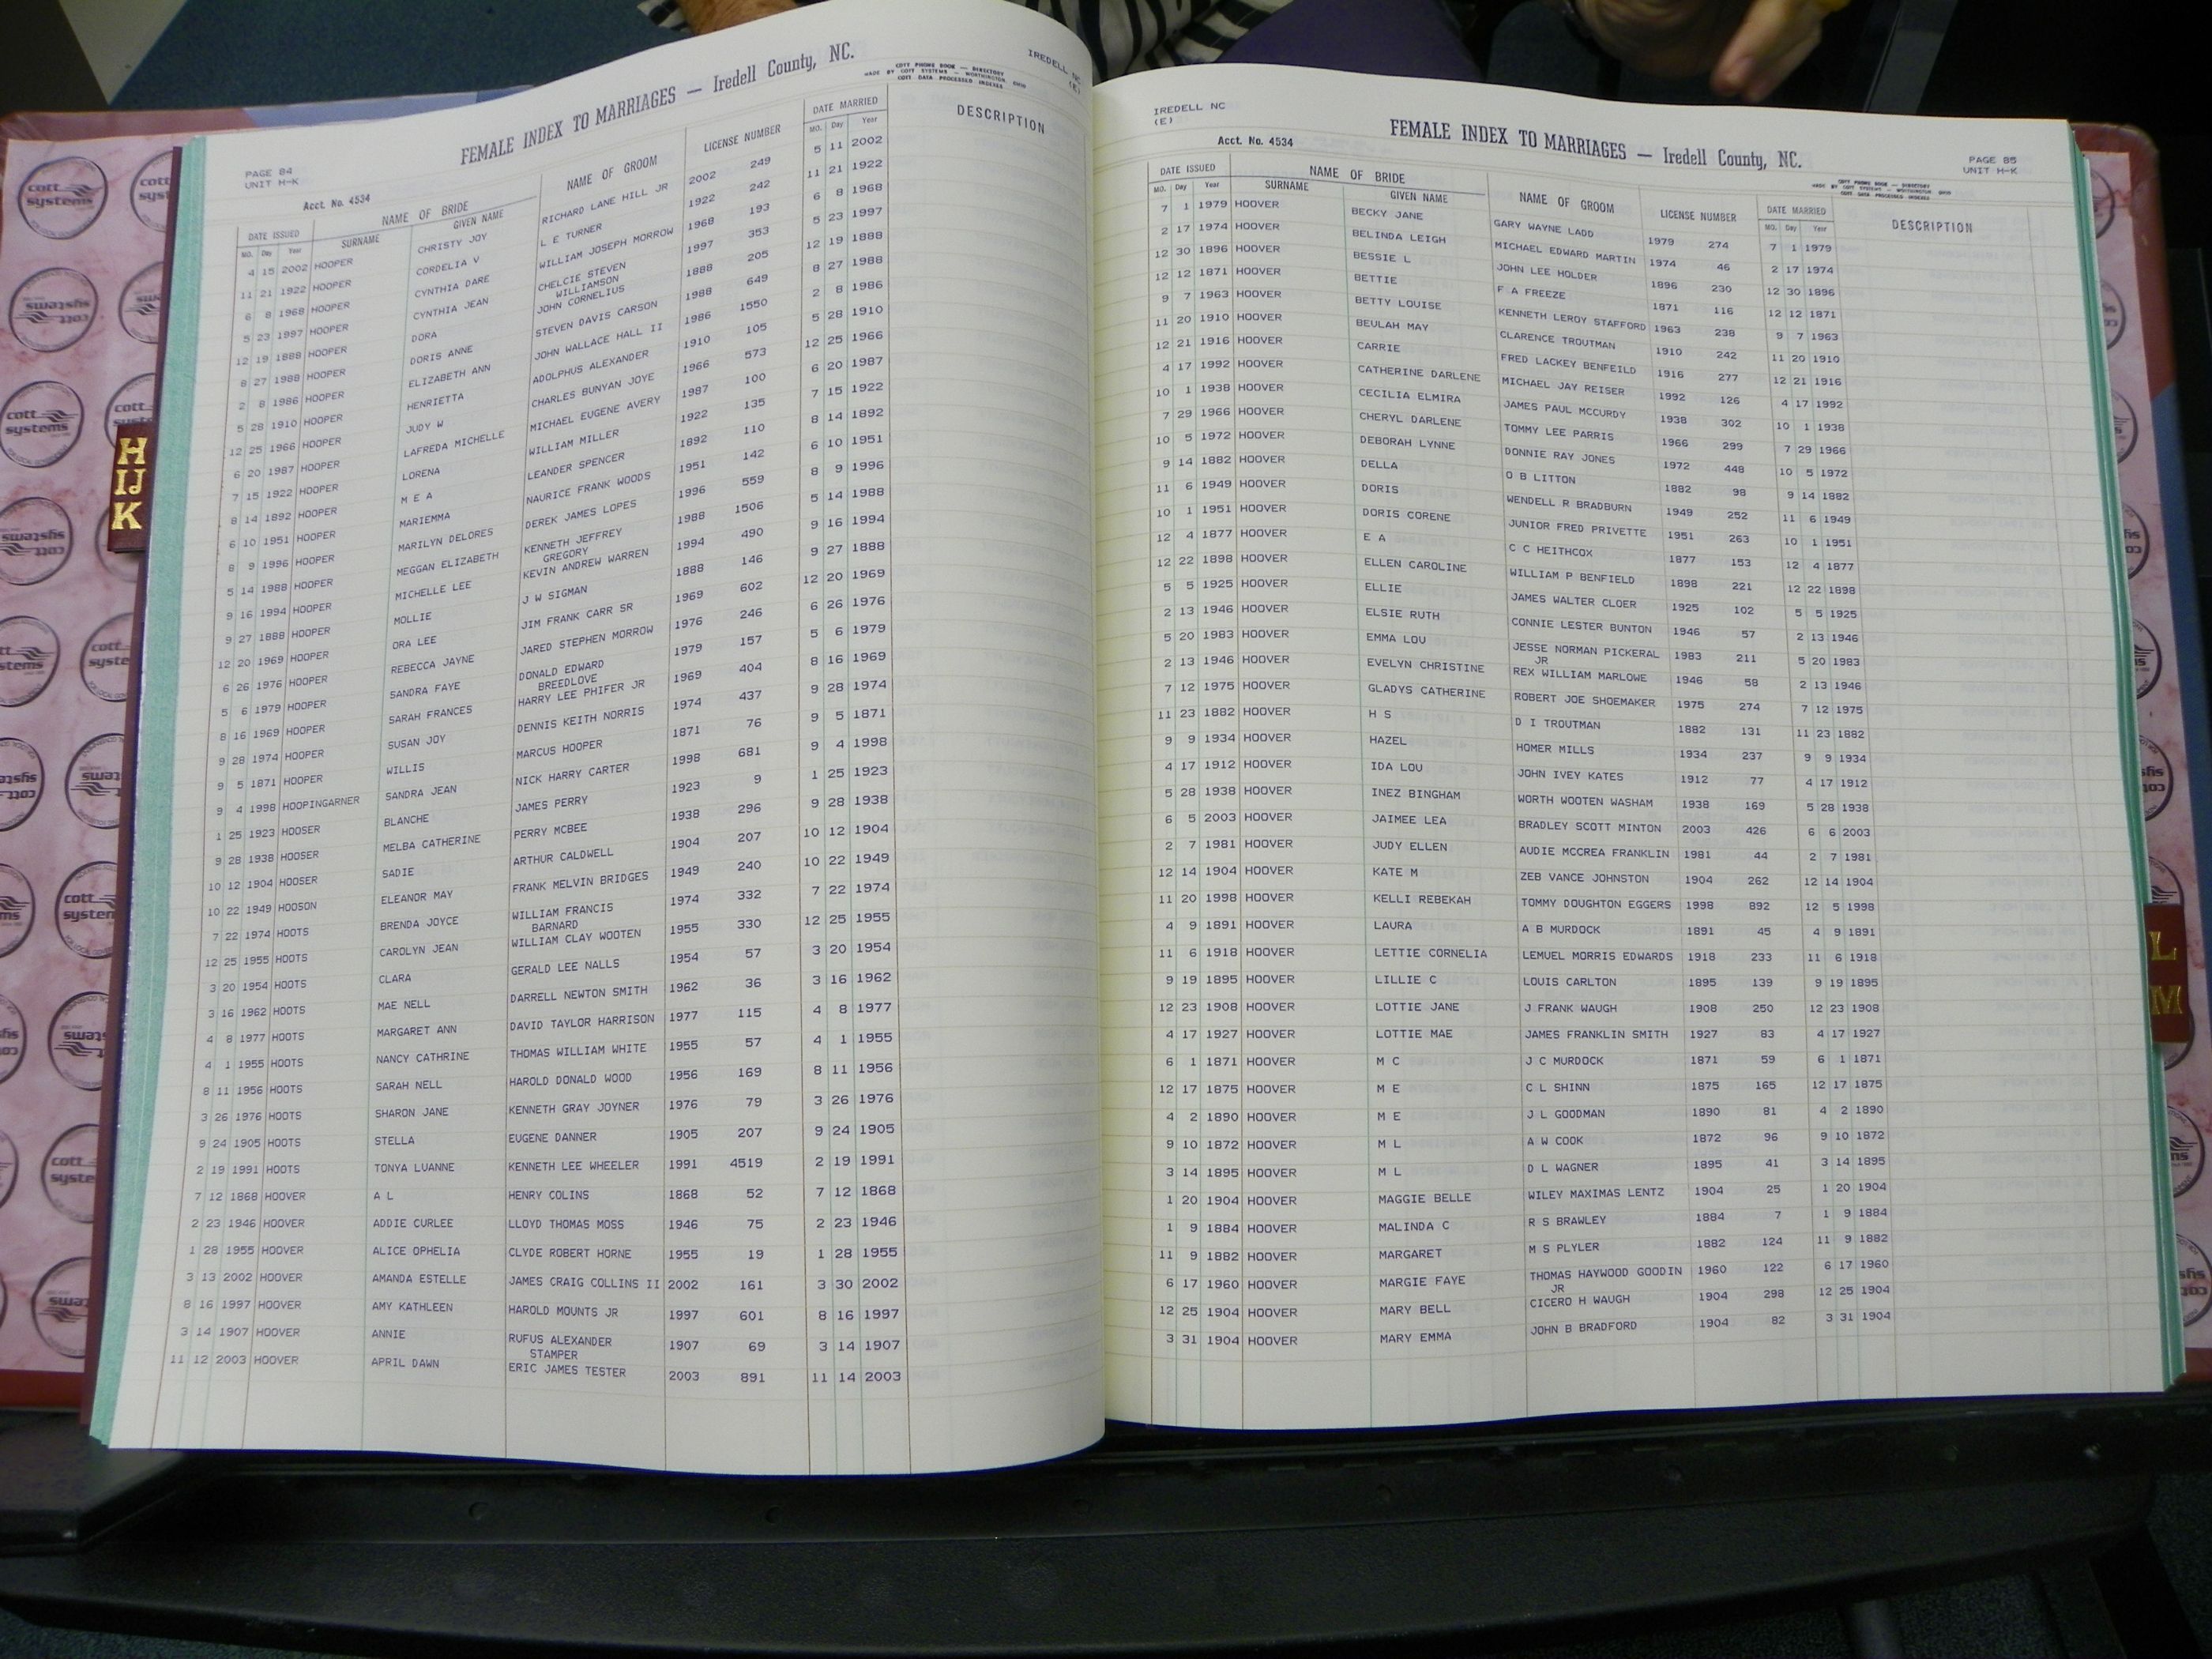 FEMALE INDEX TO MARRIAGES — Iredell County, NC.
IREDELL NC
(E)
COTT PHONE BOOK — DIRECTORY
MADE BY COTT SYSTEMS — WORTHINGTON, OHIO
COTT DATA PROCESSED INDEXES
PAGE 84
UNIT H-K
Acct. No. 4534
DATE ISSUED NAME OF BRIDE NAME OF GROOM LICENSE NUMBER DATE MARRIED DESCRIPTION
MO. Day Year SURNAME GIVEN NAME MO. Day Year
4 15 2002 HOOPER CHRISTY JOY RICHARD LANE HILL JR 2002 249 5 11 2002
11 21 1922 HOOPER CORDELIA V L E TURNER 1922 242 11 21 1922
6 8 1968 HOOPER CYNTHIA DARE WILLIAM JOSEPH MORROW 1968 193 6 8 1968
5 23 1997 HOOPER CYNTHIA JEAN CHELCIE STEVEN 1997 353 5 23 1997
WILLIAMSON
12 19 1888 HOOPER DORA JOHN CORNELIUS 1888 205 12 19 1888
8 27 1988 HOOPER DORIS ANNE STEVEN DAVIS CARSON 1988 649 8 27 1988
2 8 1986 HOOPER ELIZABETH ANN JOHN WALLACE HALL II 1986 1550 2 8 1986
5 28 1910 HOOPER HENRIETTA ADOLPHUS ALEXANDER 1910 105 5 28 1910
12 25 1966 HOOPER JUDY W CHARLES BUNYAN JOYE 1966 573 12 25 1966
6 20 1987 HOOPER LAFREDA MICHELLE MICHAEL EUGENE AVERY 1987 100 6 20 1987
7 15 1922 HOOPER LORENA WILLIAM MILLER 1922 135 7 15 1922
8 14 1892 HOOPER M E A LEANDER SPENCER 1892 110 8 14 1892
6 10 1951 HOOPER MARIEMMA NAURICE FRANK WOODS 1951 142 6 10 1951
8 9 1996 HOOPER MARILYN DELORES DEREK JAMES LOPES 1996 559 8 9 1996
5 14 1988 HOOPER MEGGAN ELIZABETH KENNETH JEFFREY 1988 1506 5 14 1988
GREGORY
9 16 1994 HOOPER MICHELLE LEE KEVIN ANDREW WARREN 1994 490 9 16 1994
9 27 1888 HOOPER MOLLIE J W SIGMAN 1888 146 9 27 1888
12 20 1969 HOOPER ORA LEE JIM FRANK CARR SR 1969 602 12 20 1969
6 26 1976 HOOPER REBECCA JAYNE JARED STEPHEN MORROW 1976 246 6 26 1976
5 6 1979 HOOPER SANDRA FAYE DONALD EDWARD 1979 157 5 6 1979
BREEDLOVE
8 16 1969 HOOPER SARAH FRANCES HARRY LEE PHIFER JR 1969 404 8 16 1969
9 28 1974 HOOPER SUSAN JOY DENNIS KEITH NORRIS 1974 437 9 28 1974
9 5 1871 HOOPER WILLIS MARCUS HOOPER 1871 76 9 5 1871
9 4 1998 HOOPINGARNER SANDRA JEAN NICK HARRY CARTER 1998 681 9 4 1998
1 25 1923 HOOSER BLANCHE JAMES PERRY 1923 9 1 25 1923
9 28 1938 HOOSER MELBA CATHERINE PERRY MCBEE 1938 296 9 28 1938
10 12 1904 HOOSER SADIE ARTHUR CALDWELL 1904 207 10 12 1904
10 22 1949 HOOSON ELEANOR MAY FRANK MELVIN BRIDGES 1949 240 10 22 1949
7 22 1974 HOOTS BRENDA JOYCE WILLIAM FRANCIS 1974 332 7 22 1974
BARNARD
12 25 1955 HOOTS CAROLYN JEAN WILLIAM CLAY WOOTEN 1955 330 12 25 1955
3 20 1954 HOOTS CLARA GERALD LEE NALLS 1954 57 3 20 1954
3 16 1962 HOOTS MAE NELL DARRELL NEWTON SMITH 1962 36 3 16 1962
4 8 1977 HOOTS MARGARET ANN DAVID TAYLOR HARRISON 1977 115 4 8 1977
4 1 1955 HOOTS NANCY CATHRINE THOMAS WILLIAM WHITE 1955 57 4 1 1955
8 11 1956 HOOTS SARAH NELL HAROLD DONALD WOOD 1956 169 8 11 1956
3 26 1976 HOOTS SHARON JANE KENNETH GRAY JOYNER 1976 79 3 26 1976
9 24 1905 HOOTS STELLA EUGENE DANNER 1905 207 9 24 1905
2 19 1991 HOOTS TONYA LUANNE KENNETH LEE WHEELER 1991 4519 2 19 1991
7 12 1868 HOOVER A L HENRY COLINS 1868 52 7 12 1868
2 23 1946 HOOVER ADDIE CURLEE LLOYD THOMAS MOSS 1946 75 2 23 1946
1 28 1955 HOOVER ALICE OPHELIA CLYDE ROBERT HORNE 1955 19 1 28 1955
3 13 2002 HOOVER AMANDA ESTELLE JAMES CRAIG COLLINS II 2002 161 3 30 2002
8 16 1997 HOOVER AMY KATHLEEN HAROLD MOUNTS JR 1997 601 8 16 1997
3 14 1907 HOOVER ANNIE RUFUS ALEXANDER 1907 69 3 14 1907
STAMPER
11 12 2003 HOOVER APRIL DAWN ERIC JAMES TESTER 2003 891 11 14 2003
IREDELL NC
(E)
Acct. No. 4534
FEMALE INDEX TO MARRIAGES — Iredell County, NC.
PAGE 85
UNIT H-K
COTT PHONE BOOK — DIRECTORY
MADE BY COTT SYSTEMS — WORTHINGTON, OHIO
COTT DATA PROCESSED INDEXES
DATE ISSUED NAME OF BRIDE NAME OF GROOM LICENSE NUMBER DATE MARRIED DESCRIPTION
MO. Day Year SURNAME GIVEN NAME MO. Day Year
7 1 1979 HOOVER BECKY JANE GARY WAYNE LADD 1979 274 7 1 1979
2 17 1974 HOOVER BELINDA LEIGH MICHAEL EDWARD MARTIN 1974 46 2 17 1974
12 30 1896 HOOVER BESSIE L JOHN LEE HOLDER 1896 230 12 30 1896
12 12 1871 HOOVER BETTIE F A FREEZE 1871 116 12 12 1871
9 7 1963 HOOVER BETTY LOUISE KENNETH LEROY STAFFORD 1963 238 9 7 1963
11 20 1910 HOOVER BEULAH MAY CLARENCE TROUTMAN 1910 242 11 20 1910
12 21 1916 HOOVER CARRIE FRED LACKEY BENFEILD 1916 277 12 21 1916
4 17 1992 HOOVER CATHERINE DARLENE MICHAEL JAY REISER 1992 126 4 17 1992
10 1 1938 HOOVER CECILIA ELMIRA JAMES PAUL MCCURDY 1938 302 10 1 1938
7 29 1966 HOOVER CHERYL DARLENE TOMMY LEE PARRIS 1966 299 7 29 1966
10 5 1972 HOOVER DEBORAH LYNNE DONNIE RAY JONES 1972 448 10 5 1972
9 14 1882 HOOVER DELLA O B LITTON 1882 98 9 14 1882
11 6 1949 HOOVER DORIS WENDELL R BRADBURN 1949 252 11 6 1949
10 1 1951 HOOVER DORIS CORENE JUNIOR FRED PRIVETTE 1951 263 10 1 1951
12 4 1877 HOOVER E A C C HEITHCOX 1877 153 12 4 1877
12 22 1898 HOOVER ELLEN CAROLINE WILLIAM P BENFIELD 1898 221 12 22 1898
5 5 1925 HOOVER ELLIE JAMES WALTER CLOER 1925 102 5 5 1925
2 13 1946 HOOVER ELSIE RUTH CONNIE LESTER BUNTON 1946 57 2 13 1946
5 20 1983 HOOVER EMMA LOU JESSE NORMAN PICKERAL 1983 211 5 20 1983
JR
2 13 1946 HOOVER EVELYN CHRISTINE REX WILLIAM MARLOWE 1946 58 2 13 1946
7 12 1975 HOOVER GLADYS CATHERINE ROBERT JOE SHOEMAKER 1975 274 7 12 1975
11 23 1882 HOOVER H S D I TROUTMAN 1882 131 11 23 1882
9 9 1934 HOOVER HAZEL HOMER MILLS 1934 237 9 9 1934
4 17 1912 HOOVER IDA LOU JOHN IVEY KATES 1912 77 4 17 1912
5 28 1938 HOOVER INEZ BINGHAM WORTH WOOTEN WASHAM 1938 169 5 28 1938
6 5 2003 HOOVER JAIMEE LEA BRADLEY SCOTT MINTON 2003 426 6 6 2003
2 7 1981 HOOVER JUDY ELLEN AUDIE MCCREA FRANKLIN 1981 44 2 7 1981
12 14 1904 HOOVER KATE M ZEB VANCE JOHNSTON 1904 262 12 14 1904
11 20 1998 HOOVER KELLI REBEKAH TOMMY DOUGHTON EGGERS 1998 892 12 5 1998
4 9 1891 HOOVER LAURA A B MURDOCK 1891 45 4 9 1891
11 6 1918 HOOVER LETTIE CORNELIA LEMUEL MORRIS EDWARDS 1918 233 11 6 1918
9 19 1895 HOOVER LILLIE C LOUIS CARLTON 1895 139 9 19 1895
12 23 1908 HOOVER LOTTIE JANE J FRANK WAUGH 1908 250 12 23 1908
4 17 1927 HOOVER LOTTIE MAE JAMES FRANKLIN SMITH 1927 83 4 17 1927
6 1 1871 HOOVER M C J C MURDOCK 1871 59 6 1 1871
12 17 1875 HOOVER M E C L SHINN 1875 165 12 17 1875
4 2 1890 HOOVER M E J L GOODMAN 1890 81 4 2 1890
9 10 1872 HOOVER M L A W COOK 1872 96 9 10 1872
3 14 1895 HOOVER M L D L WAGNER 1895 41 3 14 1895
1 20 1904 HOOVER MAGGIE BELLE WILEY MAXIMAS LENTZ 1904 25 1 20 1904
1 9 1884 HOOVER MALINDA C R S BRAWLEY 1884 7 1 9 1884
11 9 1882 HOOVER MARGARET M S PLYLER 1882 124 11 9 1882
6 17 1960 HOOVER MARGIE FAYE THOMAS HAYWOOD GOODIN 1960 122 6 17 1960
JR
12 25 1904 HOOVER MARY BELL CICERO H WAUGH 1904 298 12 25 1904
3 31 1904 HOOVER MARY EMMA JOHN B BRADFORD 1904 82 3 31 1904
H
IJ
K
L
M
cott
systems